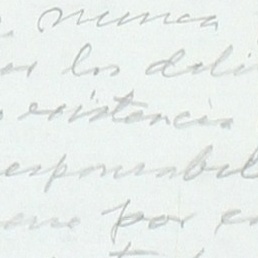 nunca
los deli
existencia
responsabil
por